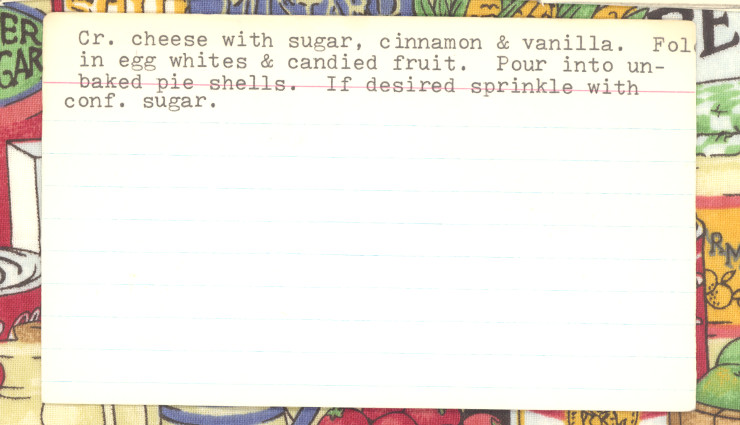 Cr. cheese with sugar, cinnamon & vanilla. Fol
in egg whites & candied fruit. Pour into un-
baked pie shells. If desired sprinkle with
conf. sugar.
ER
GAR
RM